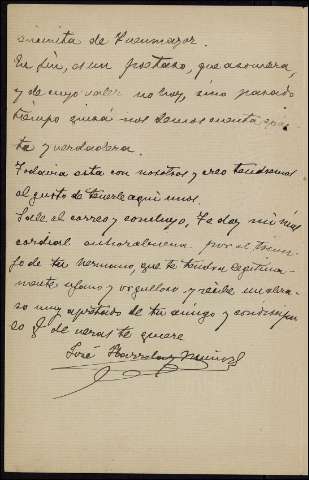 de Fuenmayor.
En fin, es un poetazo, que asombra,
y de cuyo valer no hoy, sino pasado
tiempo quizá nos demos cuenta exac-
ta y verdadera.
Todavía esta con nosotros y creo tendremos
el gusto de tenerle aquí unos.
Sale el correo y concluyo, Te doy mi más
cordial enhorabuena por el triun-
fo de tu hermano, que te tendrá legitima-
mente ufano y orgulloso y recibe un abra-
zo muy apretado de tu amigo y condiscípu-
lo q. de veras te quiere
José Muñoz